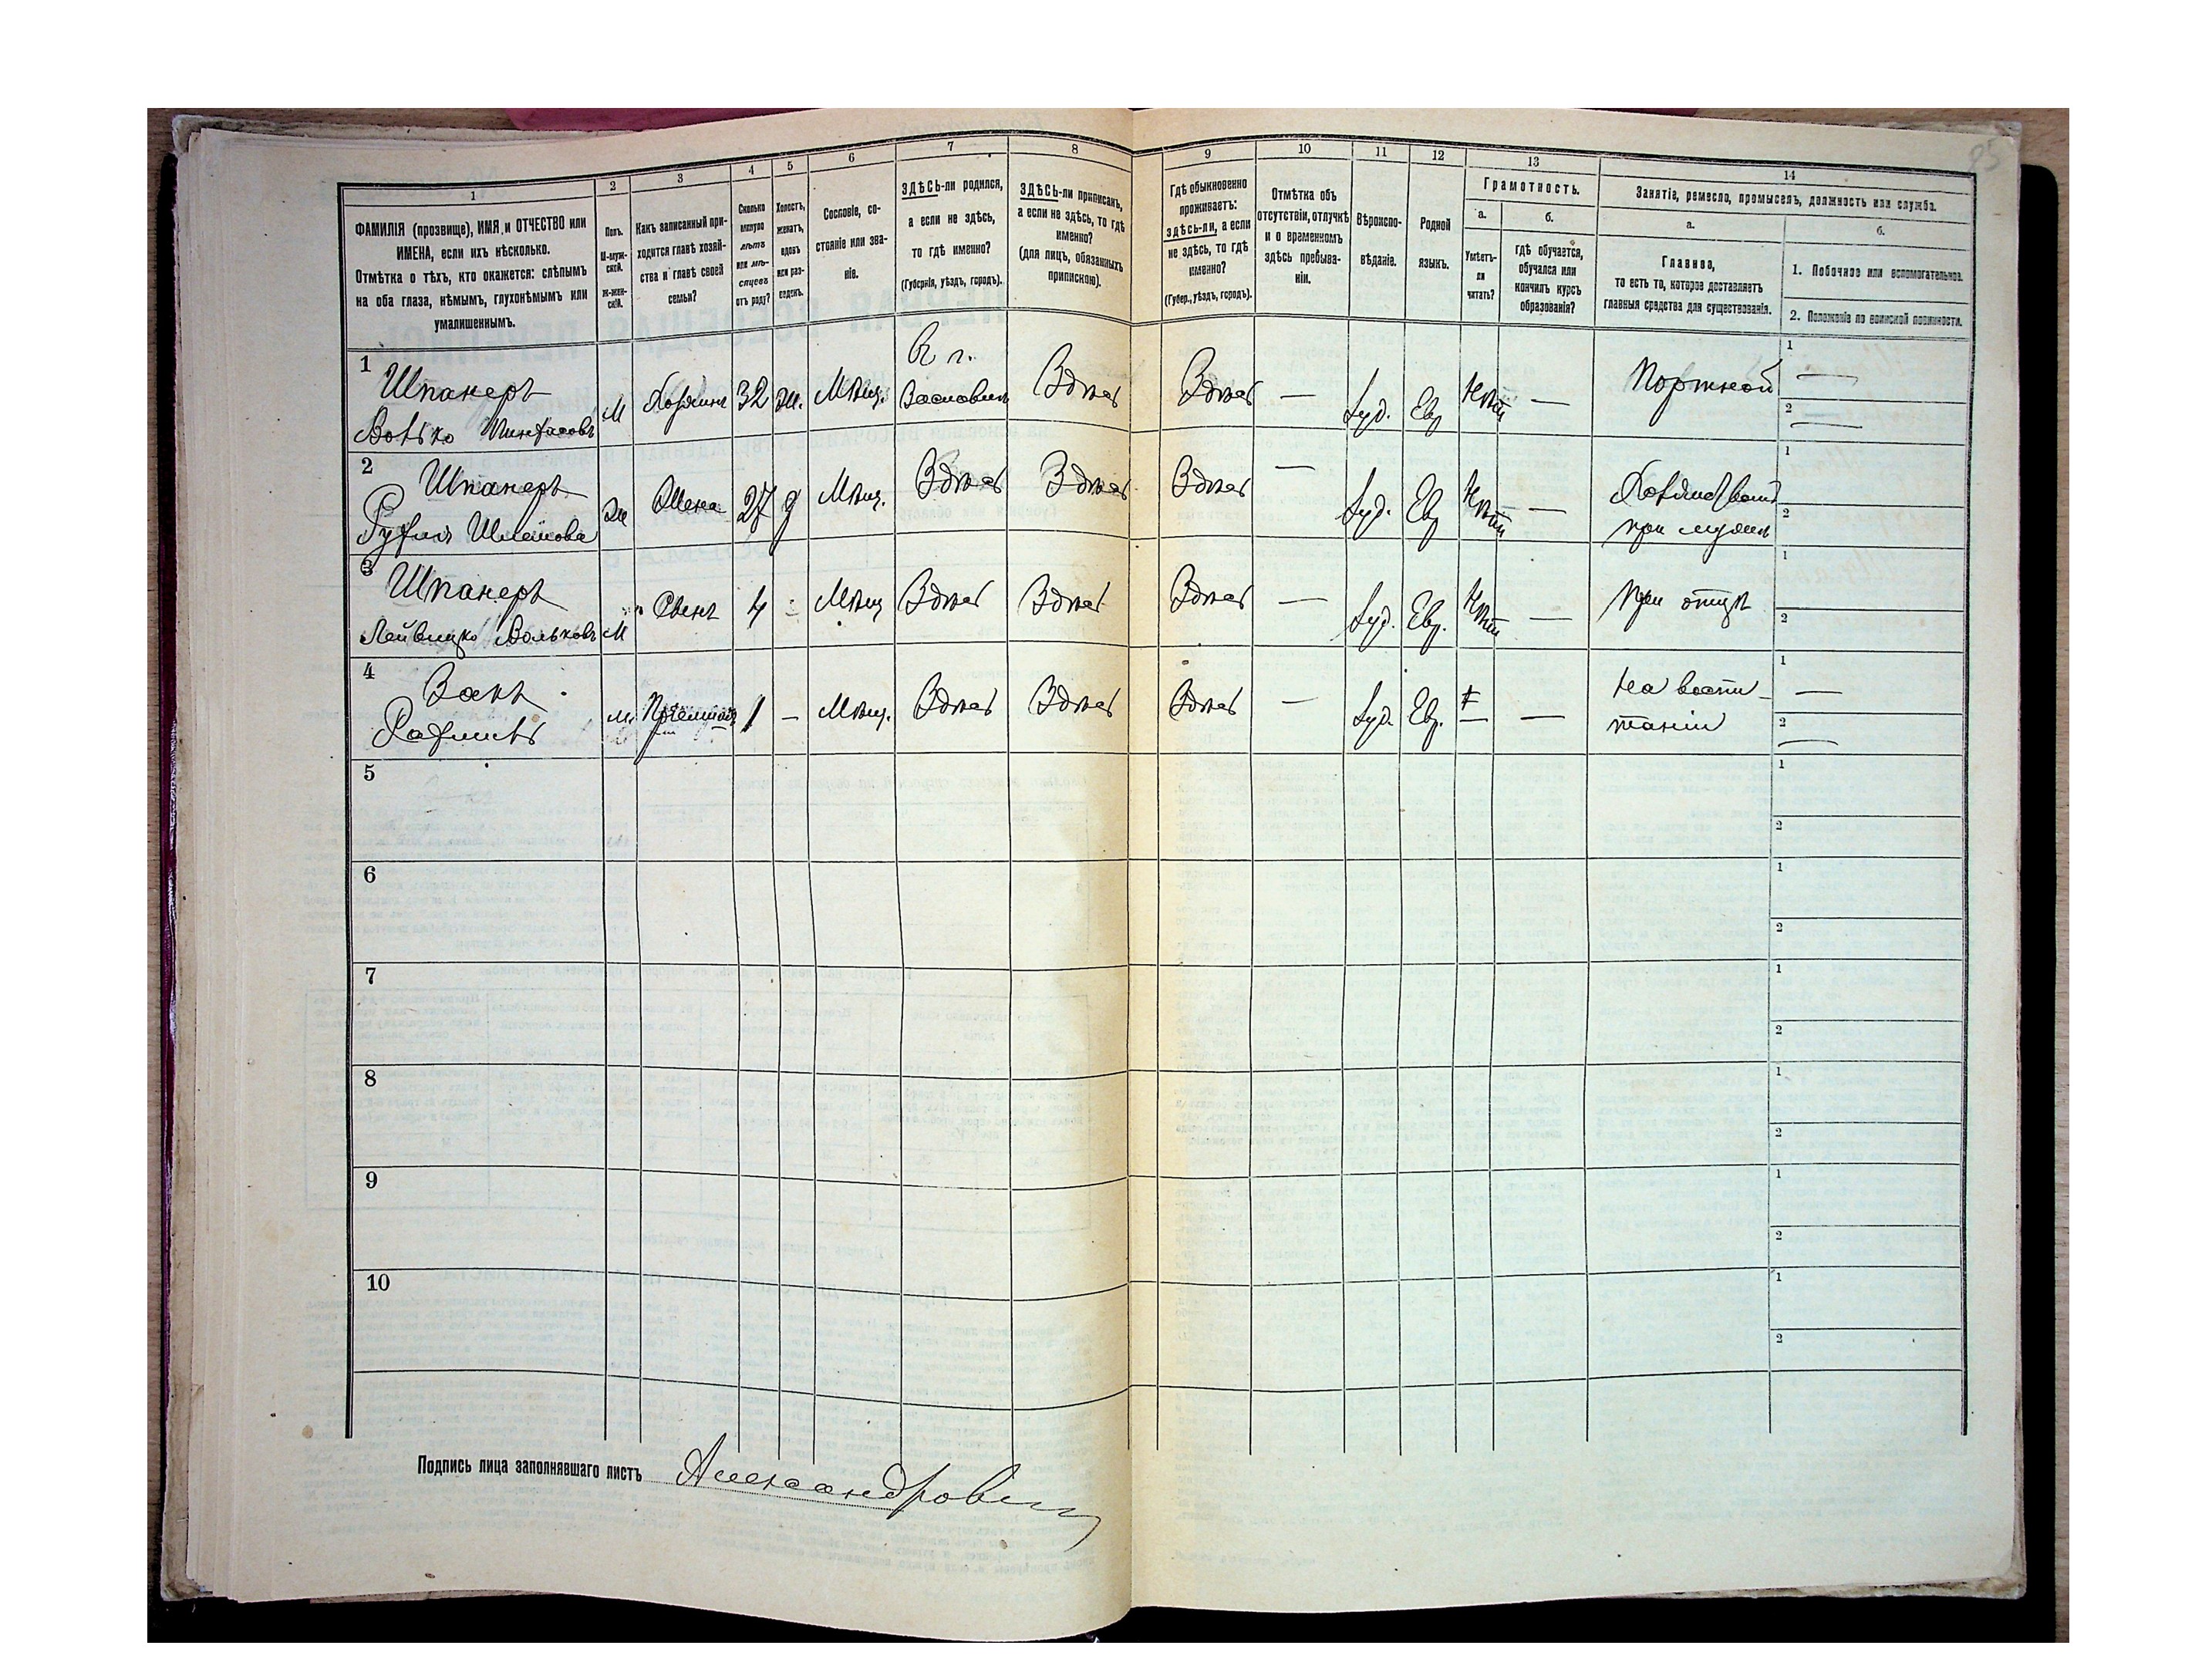 85
1 2 3 4 5 6 7 8 9 10 11 12 13 14
ФАМИЛІЯ (прозвище), ИМЯ и ОТЧЕСТВО или
ИМЕНА, если ихъ нѣсколько.
Отмѣтка о тѣхъ, кто окажется: слѣпымъ
на оба глаза, нѣмымъ, глухонѣмымъ или
умалишеннымъ.
Полъ.
М-муж-
ской.
Ж-жен-
скій.
Какъ записанный при-
ходится главѣ хозяй-
ства и главѣ своей
семьи?
Сколько
минуло
лѣтъ
или мѣ-
сяцевъ
отъ роду?
Холостъ,
женатъ,
вдовъ
или раз-
веденъ.
Сословіе, со-
стояніе или зва-
ніе.
ЗДѢСЬ-ли родился,
а если не здѣсь,
то гдѣ именно?
(Губернія, уѣздъ, городъ).
ЗДѢСЬ-ли приписанъ,
а если не здѣсь, то гдѣ
именно?
(для лицъ, обязанныхъ
припискою).
Гдѣ обыкновенно
проживаетъ:
здѣсь-ли, а если
не здѣсь, то гдѣ
именно?
(Губер., уѣздъ, городъ).
Отмѣтка объ
отсутствіи, отлучкѣ
и о временномъ
здѣсь пребыва-
ніи.
Вѣроиспо-
вѣданіе.
Родной
языкъ.
Грамотность.
а.
Умѣетъ-
ли
читать?
б.
гдѣ обучается,
обучался или
кончилъ курсъ
образованія?
Занятіе, ремесло, промыселъ, должность или служба.
а.
Главное,
то есть то, которое доставляетъ
главныя средства для существованія.
б.
1. Побочное или вспомогательное.
2. Положеніе по воинской повинности.
1
Шпанеръ
Волько Пинхасовъ
М Хозяинъ 32 Ж. Мѣщ.
В г.
Заславлѣ
Здѣсь Здѣсь — Іуд. Евр Нѣтъ — Портной
1 —
2 —
2
Шпанеръ
Рухля Шлёмова
Ж Жена 27 З Мѣщ. Здѣсь Здѣсь Здѣсь — Іуд. Евр Нѣтъ —
при мужѣ
1
2
3
Шпанеръ
Лейвицко Вольковъ
М Сынъ 4 - Мѣщ Здѣсь Здѣсь Здѣсь — Іуд. Евр. Нѣтъ — При отцѣ
1
2
4
Закъ
М. Пріёмышъ 1 — Мѣщ. Здѣсь Здѣсь Здѣсь — Іуд. Евр. — —
На воспи-
таніи
1 —
2 —
5
1
2
6
1
2
7
1
2
8
1
2
9
1
2
10
1
2
Подпись лица заполнявшаго листъ Александровичъ